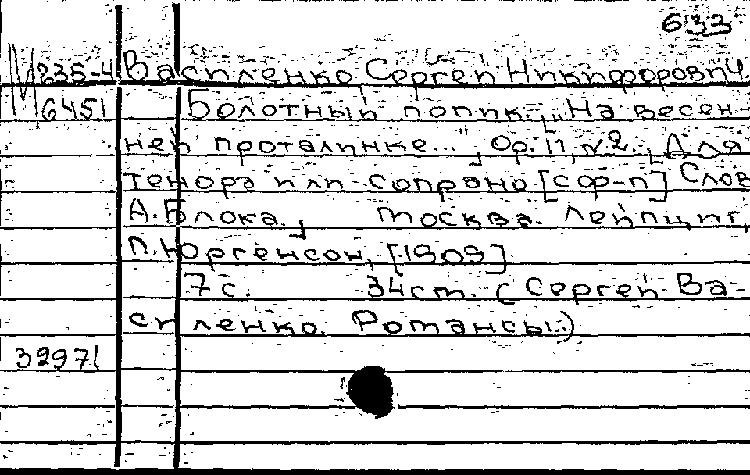 633
М 235-4 Василенко, Сергей Никифорович.
6451 Болотный попик. „На весен-
ней проталинке...", Ор. 11, №2. Для
тенора или сопрано [с ф-п] Слов
А. Блока. Москва. Лейпциг,
П. Юргенсон, [1909]
7 с. 34 см. (Сергей Ва-
силенко. Романсы.)
32971